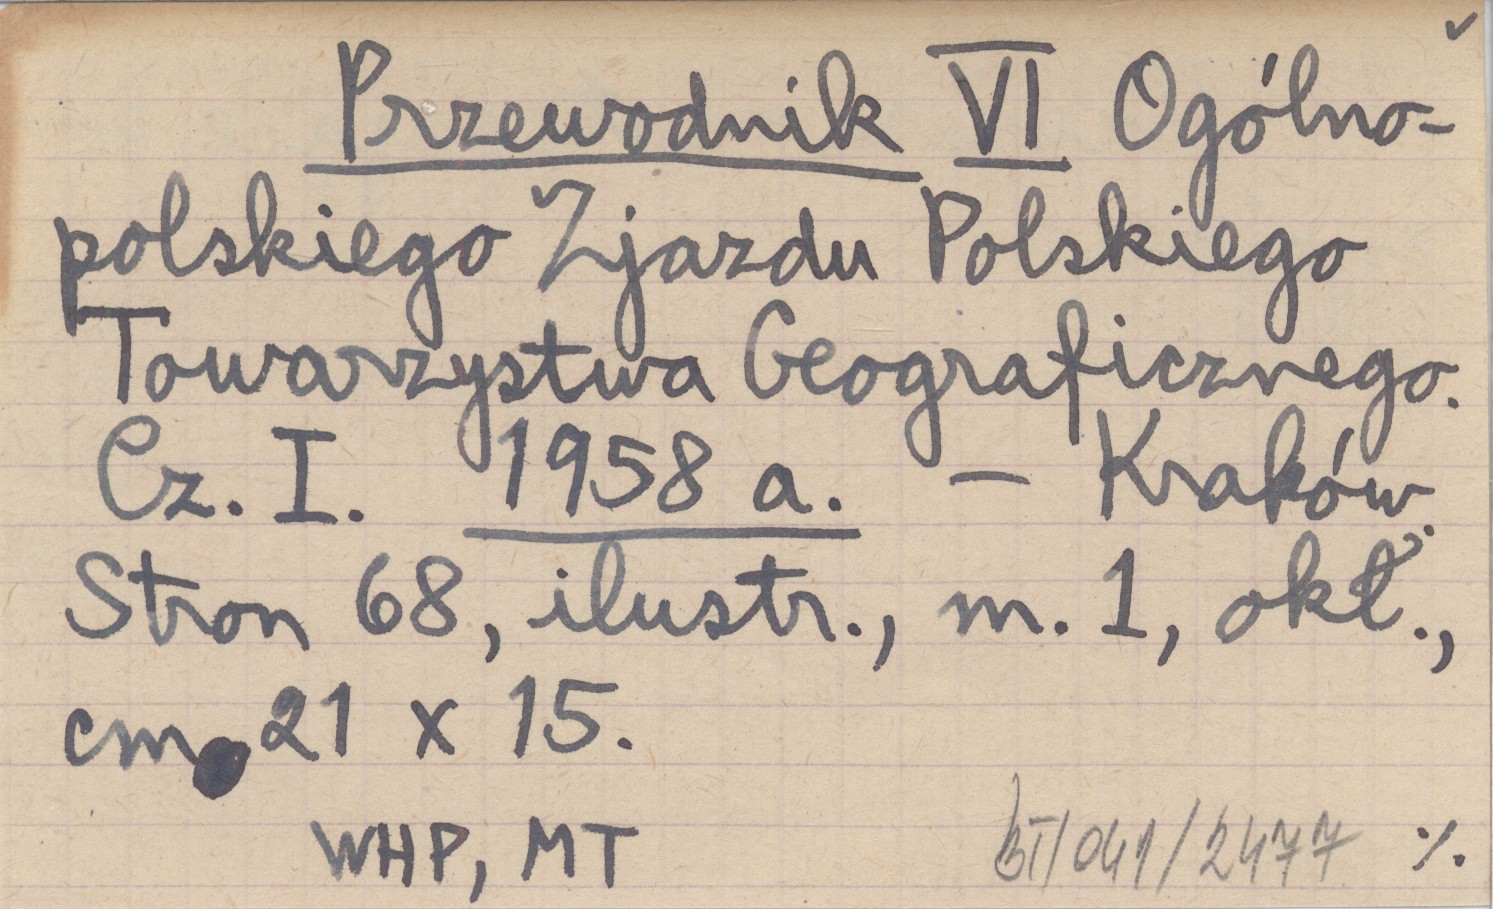 Przewodnik VI Ogólno-
polskiego Zjazdu Polskiego
Towarzystwa Geograficznego.
Cz. I. 1958 a. — Kraków.
Stron 68, ilustr., m. 1, okł.,
cm 21 x 15.
WHP, MT
/041/2477 %.